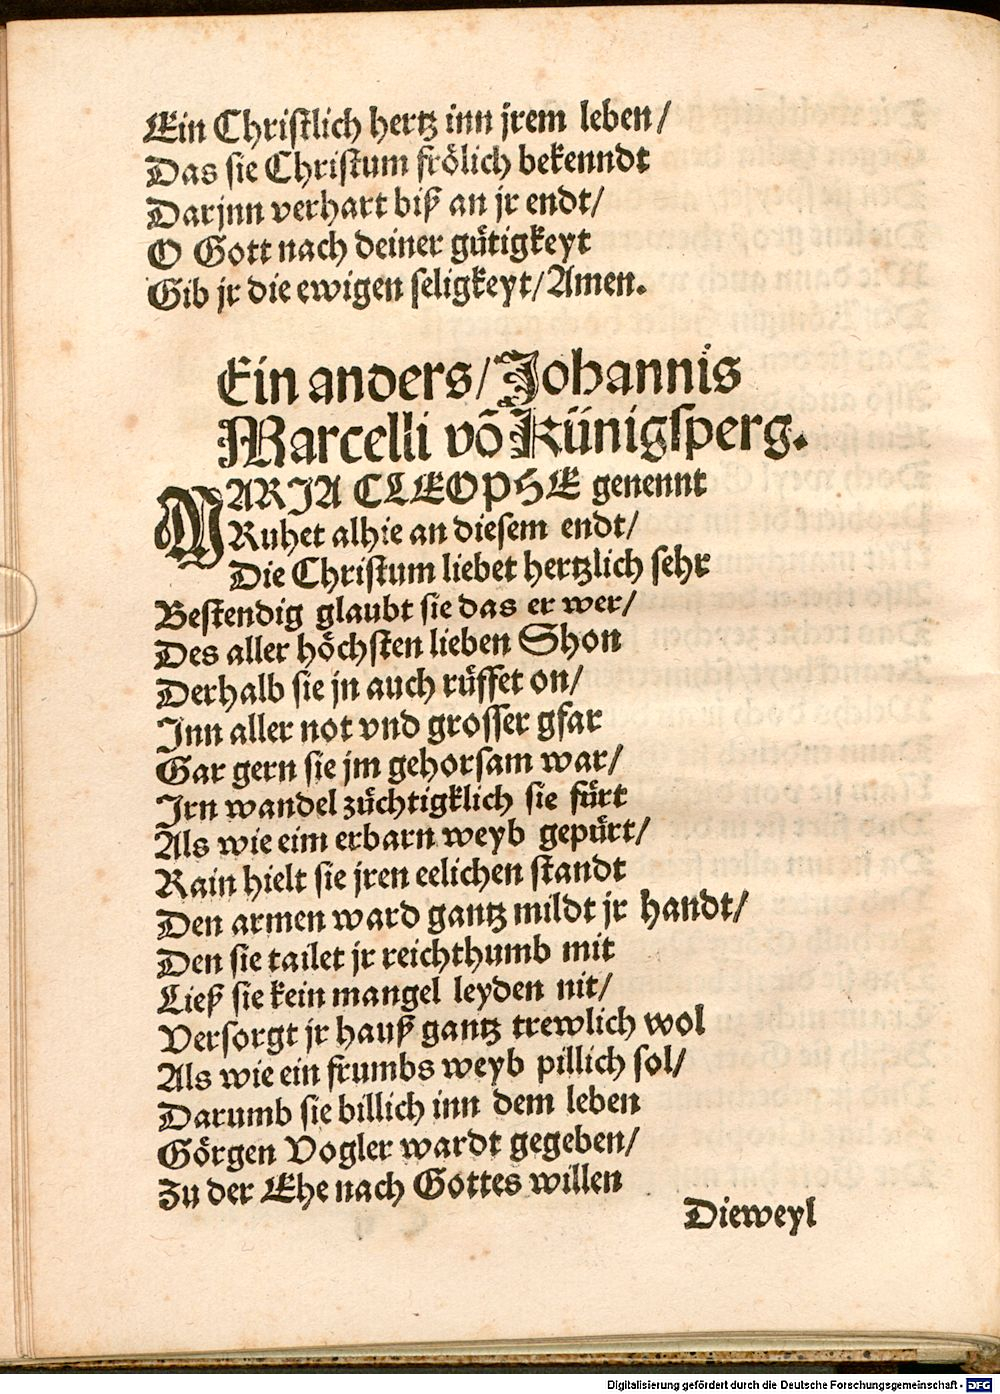 Ein Christlich hertz inn jrem leben/
Das sie Christum frölich bekenndt
Darjnn verhart biß an jr endt/
O Gott nach deiner gütigkeyt
Gib jr die ewigen seligkeyt/Amen.
Ein anders/Johannis
Marcelli võ Künigsperg.
MARJA CLEOPHE genennt
Ruhet alhie an diesem endt/
Die Christum liebet hertzlich sehr
Bestendig glaubt sie das er wer/
Des aller höchsten lieben Shon
Derhalb sie jn auch rüffet on/
Jnn aller not vnd grosser gfar
Gar gern sie jm gehorsam war/
Jrn wandel züchtigklich sie fürt
Als wie eim erbarn weyb gepürt/
Rain hielt sie jren eelichen standt
Den armen ward gantz mildt jr handt/
Den sie tailet jr reichthumb mit
Ließ sie kein mangel leyden nit/
Versorgt jr hauß gantz trewlich wol
Als wie ein frumbs weyb pillich sol/
Darumb sie billich inn dem leben
Görgen Vogler wardt gegeben/
Zu der Ehe nach Gottes willen
Dieweyl
Digitalisierung gefördert durch die Deutsche Forschungsgemeinschaft - DFG